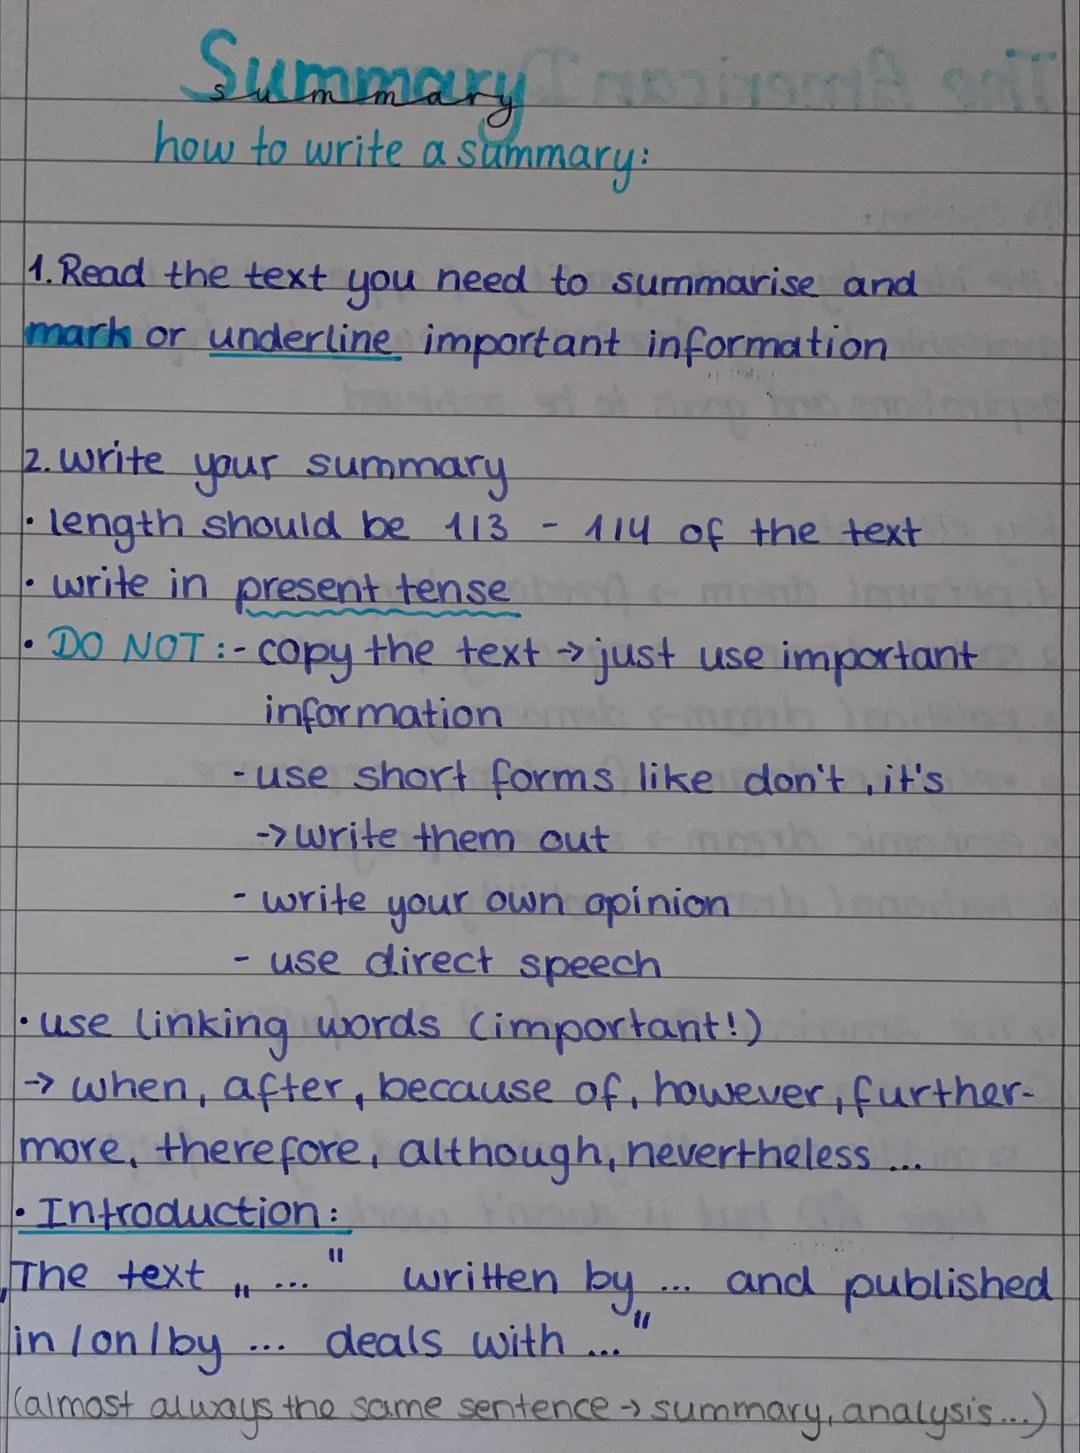 Summary
summary
how to write a summary:
1. Read the text you need to summarise and
mark or underline important information
2. write your summary
· length should be 1/3 - 1/4 of the text
· write in present tense
· DO NOT: - copy the text → just use important
information
- use short forms like don't, it's
→ write them out
- write your own opinion
- use direct speech
· use linking words (important!)
→ when, after, because of, however, further-
more, therefore, although, nevertheless ...
· Introduction:
„The text „ ... " written by ... and published
in/on/by ... deals with ..."
(almost always the same sentence → summary, analysis...)